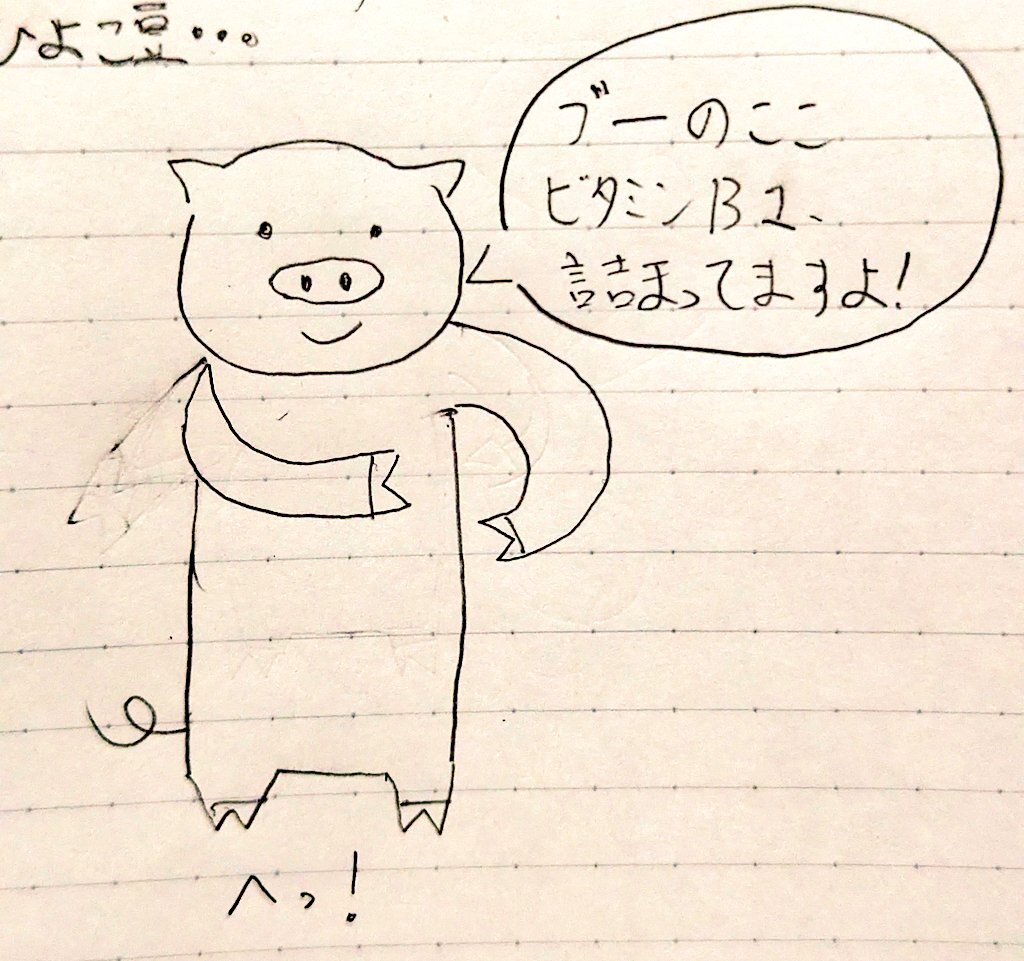 ひよこ豆...
ブーのここ
ビタミンB1、
詰まってますよ!
へっ!